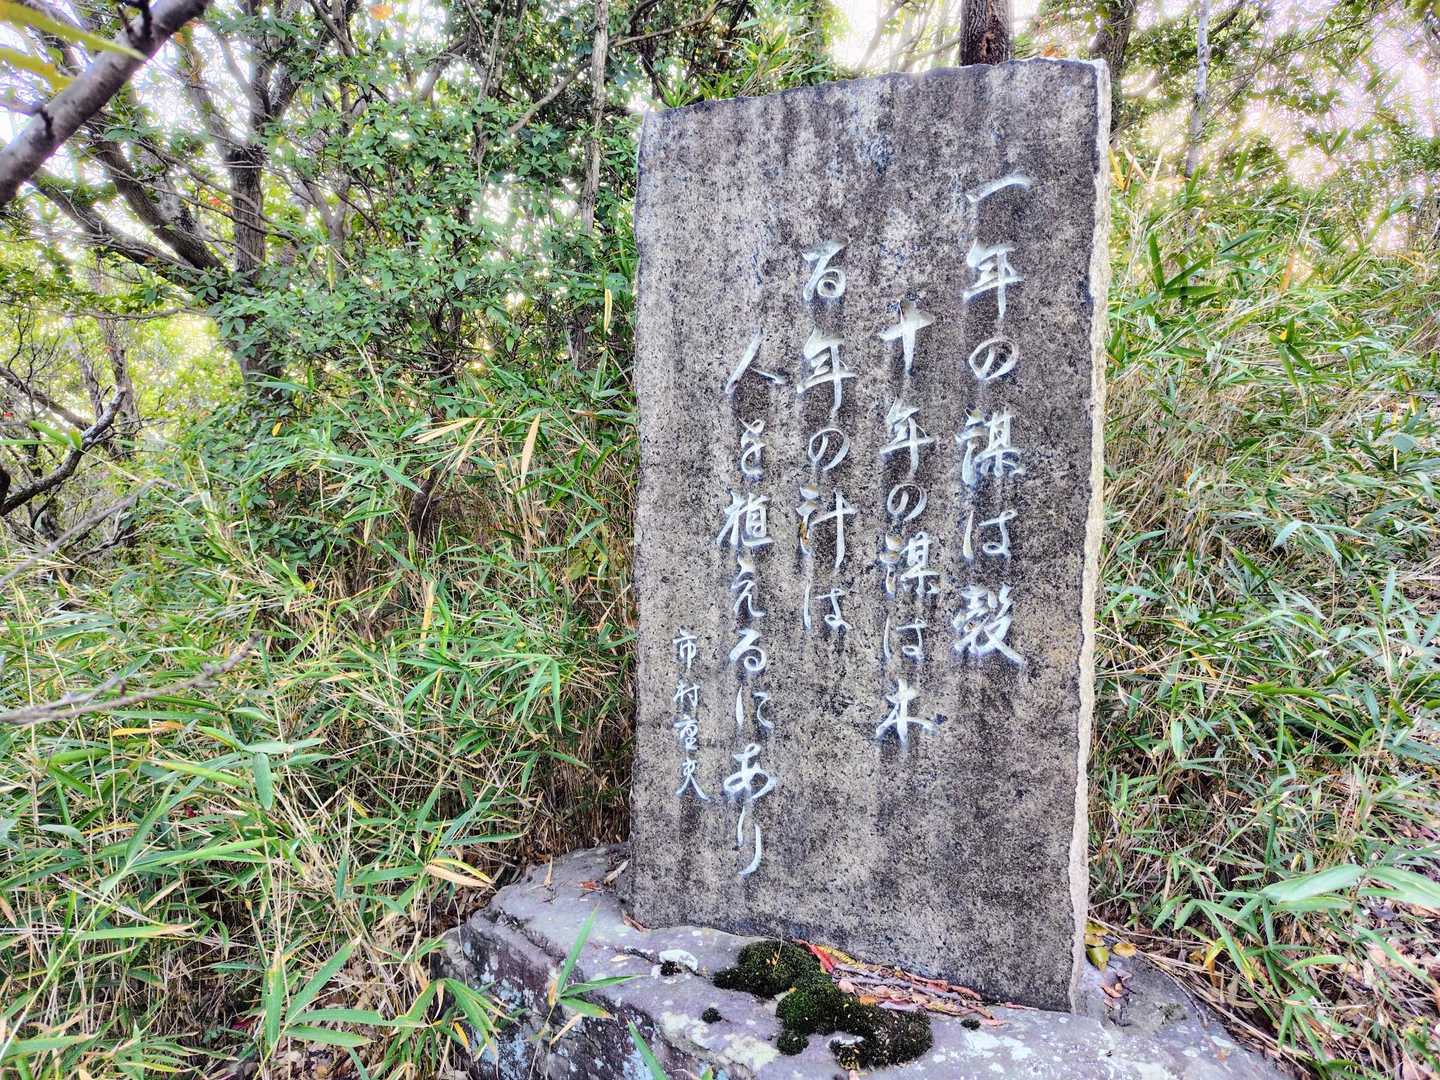 一年の謀は穀
十年の謀は木
百年の計は
人を植えるにあり
市村重夫